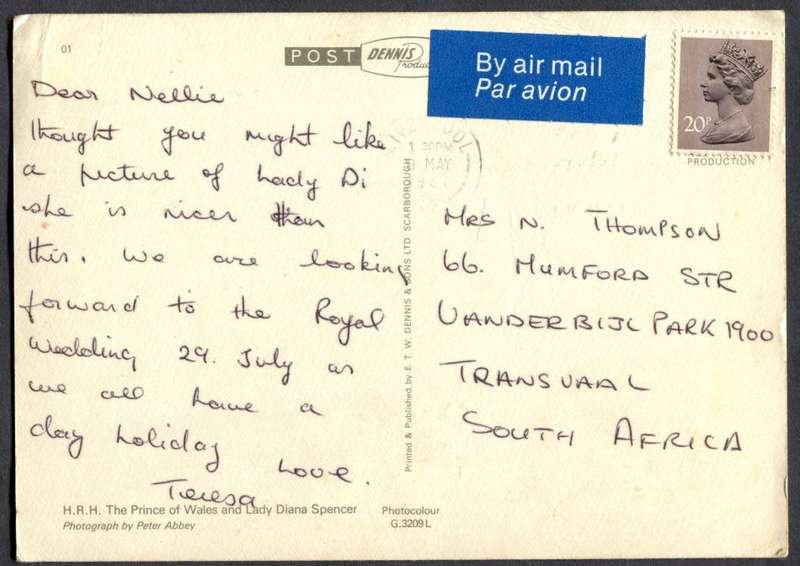 01
POST
DENNIS
Produc
By air mail
Par avion
20P
PRODUCTION
POOL
MAY
Dear Nellie
thought you might like
a picture of Lady Di
she is nicer than
this. We are looking
forward to the Royal
Wedding 29. July as
we all have a
day holiday
Love.
Teresa
Printed & Published by E. T. W. DENNIS & SONS LTD. SCARBOROUGH
MRS N. THOMPSON
66. MUMFORD STR
VANDERBIJL PARK 1900
TRANSVAAL
SOUTH AFRICA
H.R.H. The Prince of Wales and Lady Diana Spencer
Photograph by Peter Abbey
Photocolour
G.3209L